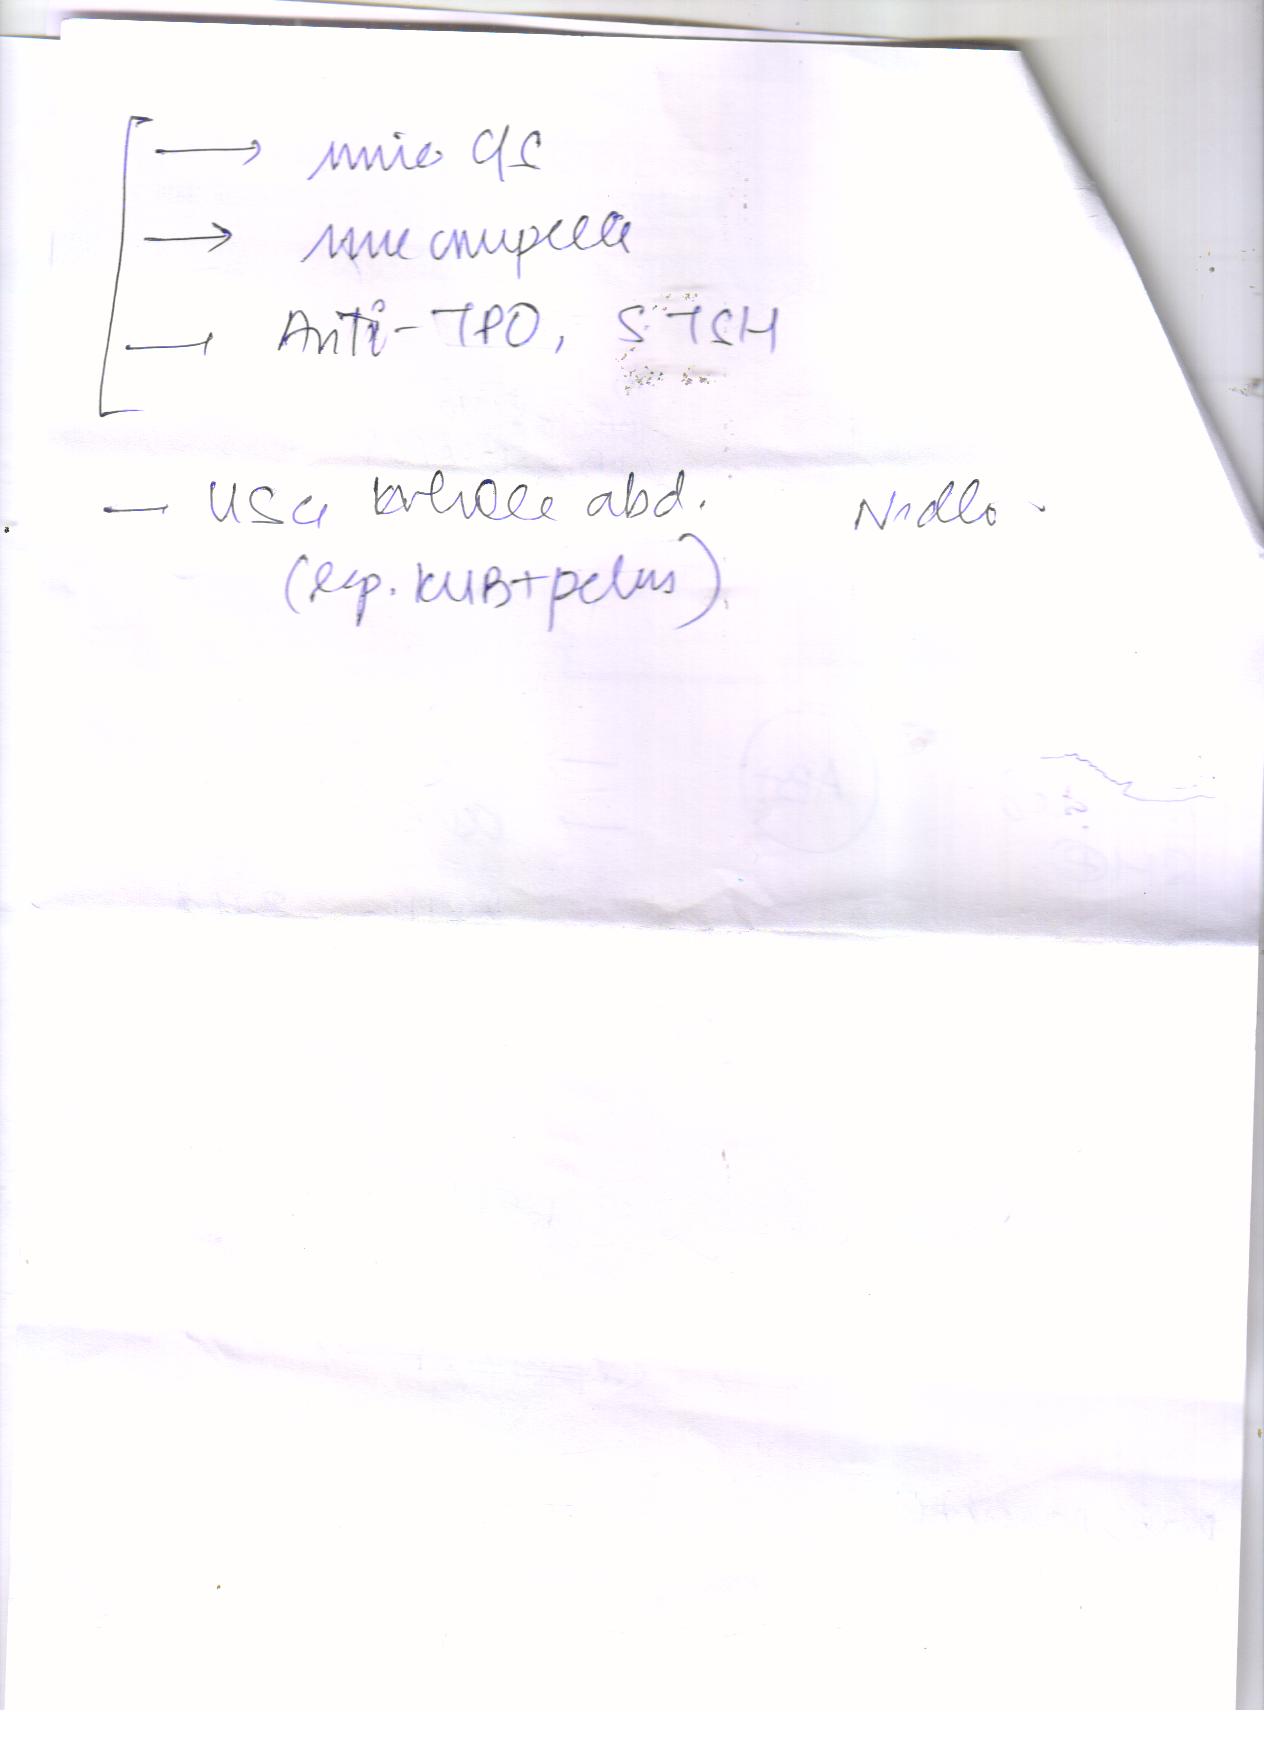 → urine C/S
→ urine complete
→ Anti-TPO, S.TSH
— USG whole abd.
(esp. KUB+pelvis)